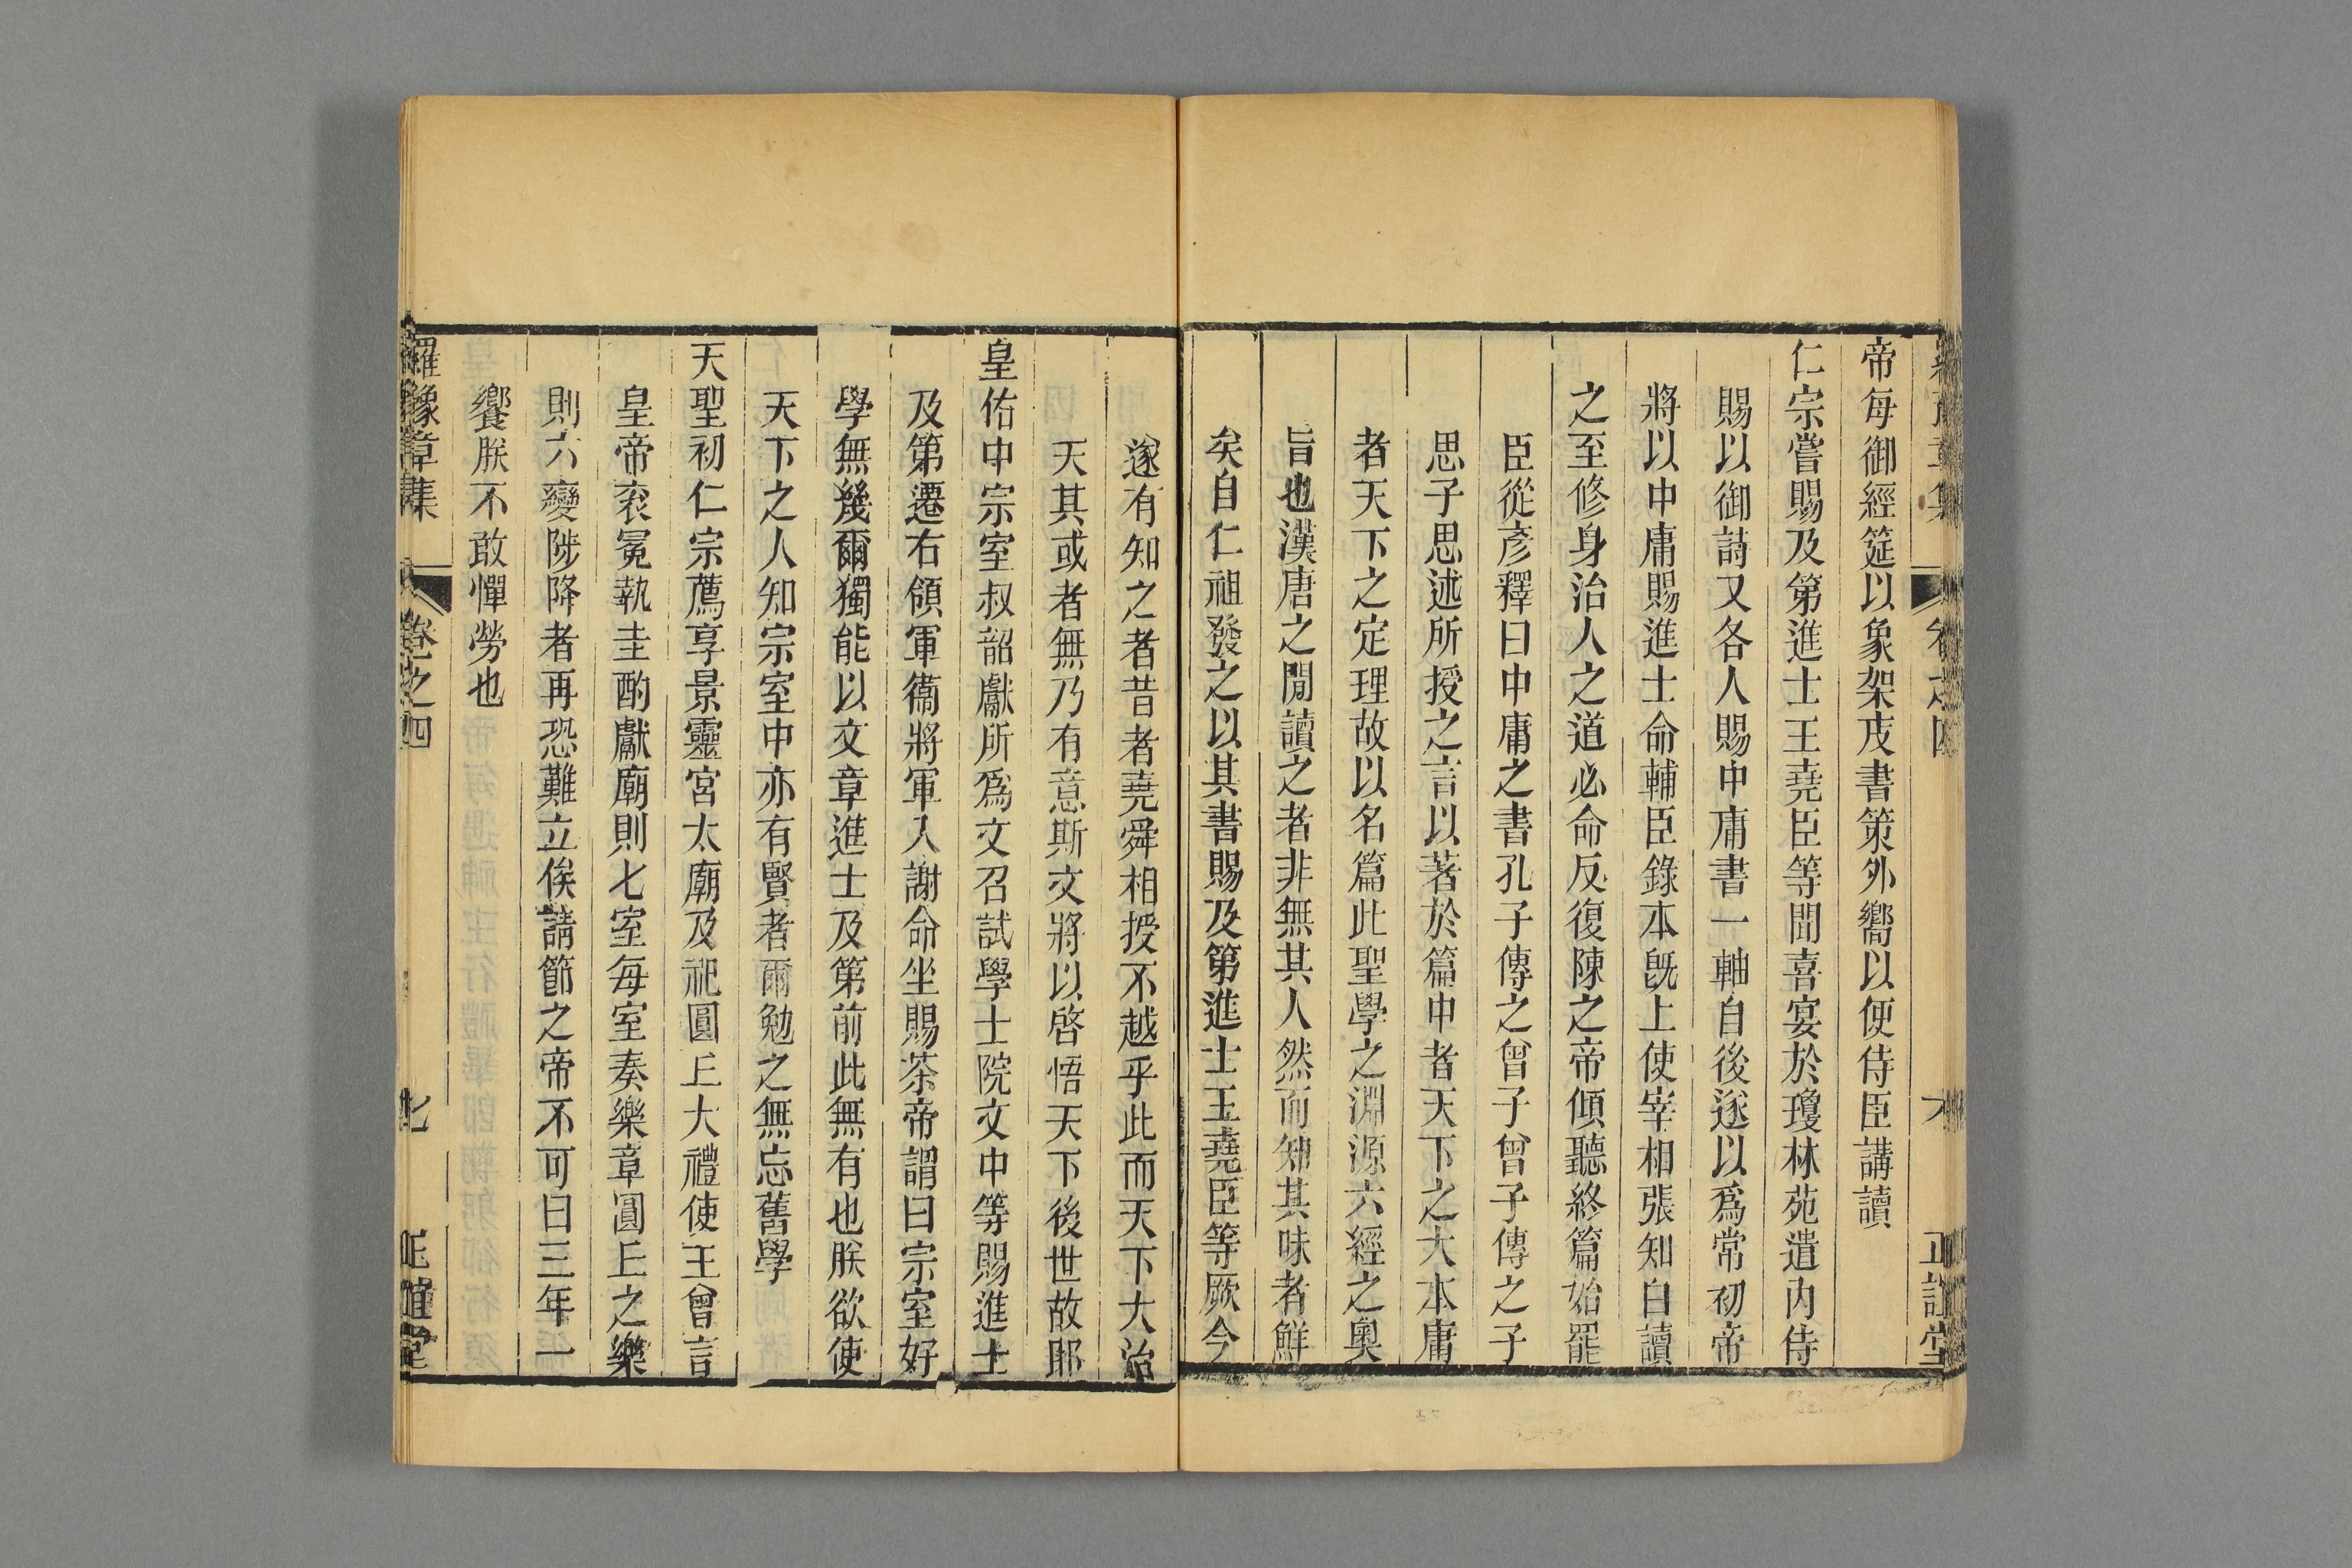 帝每御經筵以象架庋書策外嚮以便侍臣講讀
仁宗嘗賜及第進士王堯臣等聞喜宴於瓊林苑遣內侍
賜以御詩又各人賜中庸書一軸自後遂以爲常初帝
將以中庸賜進士命輔臣錄本旣上使宰相張知白讀
之至修身治人之道必命反復陳之帝傾聽終篇始罷
臣從彥釋曰中庸之書孔子傳之曾子曾子傳之子
思子思述所授之言以著於篇中者天下之大本庸
者天下之定理故以名篇此聖學之淵源六經之奧
旨也漢唐之閒讀之者非無其人然而知其味者鮮
矣自仁祖發之以其書賜及第進士王堯臣等厥今
遂有知之者昔者堯舜相授不越乎此而天下大治
天其或者無乃有意斯文將以啓悟天下後世故耶
皇佑中宗室叔韶獻所爲文召試學士院文中等賜進士
及第遷右領軍衞將軍入謝命坐賜茶帝謂曰宗室好
學無幾爾獨能以文章進士及第前此無有也朕欲使
天下之人知宗室中亦有賢者爾勉之無忘舊學
天聖初仁宗薦享景靈宮太廟及祀圓丘大禮使王曾言
皇帝衮冕執圭酌獻廟則七室每室奏樂章圓丘之樂
則六變陟降者再恐難立俟請節之帝不可曰三年一
饗朕不敢憚勞也
羅豫章集
卷之四
七
正誼堂